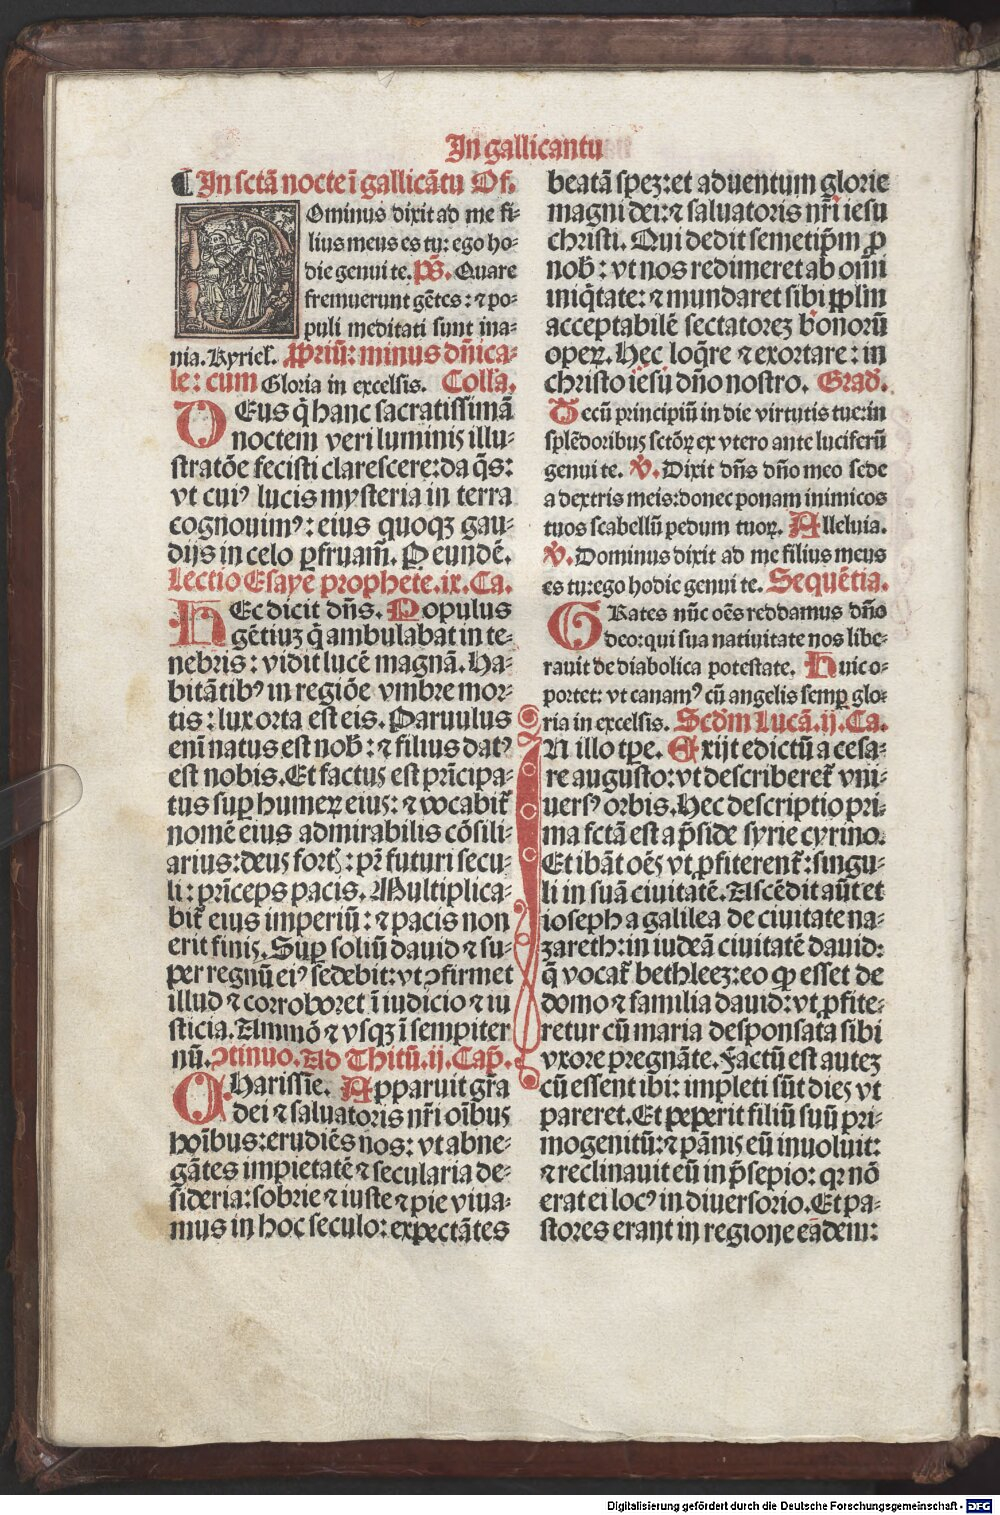 In gallicantu
¶ In sctā nocte ī gallicātu Of.
DOminus dixit ad me fi-
lius meus es tu: ego ho-
die genui te. P̄s. Quare
fremuerunt gētes: ⁊ po-
puli meditati sunt ina-
nia. Kyriel. Ꝓpriū: minus dn̄ica-
le: cum Gloria in excelsis. Coll'a.
DEus q̄ hanc sacratissimā
noctem veri luminis illu-
stratōe fecisti clarescere: da q̄s:
vt cuiꝰ lucis mysteria in terra
cognouimꝰ: eius quoqꝫ gau-
dijs in celo ꝑfruam̄. P eundē.
Lectio Esaye prophete. ix. Ca.
HEc dicit dn̄s. Populus
gētiuꝫ q̄ ambulabat in te-
nebris: vidit lucē magnā. Ha-
bitātibꝰ in regiōe vmbre mor-
tis: lux orta est eis. Paruulus
eni natus est nob̄: ⁊ filius datꝰ
est nobis. Et factus est prīcipa-
tus suꝑ humeꝝ eius: ⁊ vocabit̄
nomē eius admirabilis cōsili-
arius: deus fort̄: pr̄ futuri secu-
li: prīceps pacis. Multiplica-
bit̄ eius imperiū: ⁊ pacis non
erit finis. Suꝑ soliū dauid ⁊ su-
per regnū eiꝰ sedebit: vt ꝯfirmet
illud ⁊ corroboret ī iudicio ⁊ iu
sticia. Ammō ⁊ vsqꝫ ī sempiter
nū. ꝯtinuo. Ad Thitū. ij. Cap̄.
CHarissīe. Apparuit gr̄a
dei ⁊ saluatoris nr̄i oībus
hoībus: erudiēs nos: vt abne-
gātes impietatē ⁊ secularia de-
sideria: sobrie ⁊ iuste ⁊ pie viua-
mus in hoc seculo: expectātes
beatā speꝫ: et aduentum glorie
magni dei: ⁊ saluatoris nr̄i iesu
christi. Qui dedit semetip̄m ꝓ
nob̄: vt nos redimeret ab om̄i
iniq̄tate: ⁊ mundaret sibi pp̄lm
acceptabilē sectatoreꝫ bonorū
opeꝝ. Hec loq̄re ⁊ exortare: in
christo iesu dn̄o nostro. Grad̄.
Tecū principiū in die virtutis tue: in
splēdoribus sctōꝝ ex vtero ante luciferū
genui te. V̄. Dixit dn̄s dn̄o meo sede
a dextris meis: donec ponam inimicos
tuos scabellū pedum tuoꝝ. Alleluia.
V̄. Dominus dixit ad me filius meus
es tu: ego hodie genui te. Sequētia.
GRates nūc oēs reddamus dn̄o
deo: qui sua natiuitate nos libe-
rauit de diabolica potestate. Huic o-
portet: vt canamꝰ cū angelis semꝑ glo-
ria in excelsis. Scd̄m Lucā. ij. Ca.
IN illo tp̄e. Exijt edictū a cesa-
re augusto: vt describeret̄ vni-
uersꝰ orbis. Hec descriptio pri-
ma fctā est a p̄side syrie cyrino.
Et ibāt oēs vt ꝓfiterent̄: singu-
li in suā ciuitatē. Ascēdit aūt et
ioseph a galilea de ciuitate na-
zareth: in iudeā ciuitatē dauid:
q̄ vocat̄ bethleeꝫ: eo ꝙ esset de
domo ⁊ familia dauid: vt ꝓfite-
retur cū maria desponsata sibi
vxore pregnāte. Factū est auteꝫ
cū essent ibi: impleti sūt dies vt
pareret. Et peperit filiū suū pri-
mogenitū: ⁊ pānis eū inuoluit:
⁊ reclinauit eū in p̄sepio: qꝛ nō
erat ei locꝰ in diuersorio. Et pa-
stores erant in regione eādem:
Digitalisierung gefördert durch die Deutsche Forschungsgemeinschaft - DFG